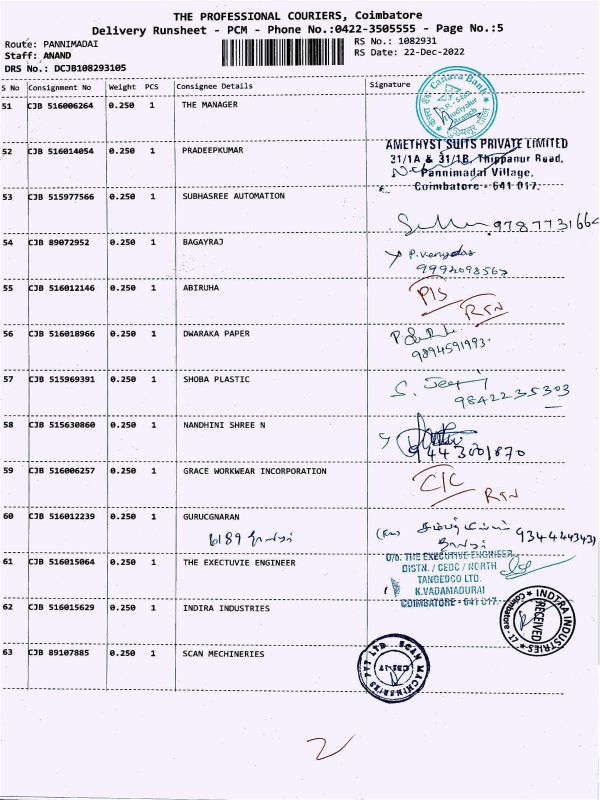 THE PROFESSIONAL COURIERS, Coimbatore
Delivery Runsheet - PCM - Phone No.:0422-3505555 - Page No.:5
Route: PANNIMADAI
RS No.: 1082931
Staff: ANAND
RS Date: 22-Dec-2022
DRS No.: DCJB108293105
S No Consignment No Weight PCS Consignee Details Signature
51 CJB 516006264 0.250 1 THE MANAGER
Canara Bank
Branch
52 CJB 516014054 0.250 1 PRADEEPKUMAR
AMETHYST SUITS PRIVATE LIMITED
31/1A & 31/1B, Thippanur Road,
Pannimadai Village,
Coimbatore - 641 017.
53 CJB 515977566 0.250 1 SUBHASREE AUTOMATION
54 CJB 89072952 0.250 1 BAGAYRAJ
55 CJB 516012146 0.250 1 ABIRUHA
RTN
56 CJB 516018966 0.250 1 DWARAKA PAPER
9894591993
57 CJB 515969391 0.250 1 SHOBA PLASTIC
9842235303
58 CJB 515630860 0.250 1 NANDHINI SHREE N
9443001870
59 CJB 516006257 0.250 1 GRACE WORKWEAR INCORPORATION
C/C RTN
60 CJB 516012239 0.250 1 GURUCGNARAN
61 CJB 516015064 0.250 1 THE EXECTUVIE ENGINEER
O/o. THE EXECUTIVE ENGINEER
DISTN. / CEDC / NORTH
TANGEDCO LTD.
K.VADAMADURAI
COIMBATORE - 641 017.
62 CJB 516015629 0.250 1 INDIRA INDUSTRIES
INDIRA INDUSTRIES
RECEIVED
Coimbatore - 17
63 CJB 89107885 0.250 1 SCAN MECHINERIES
SCAN MACHINERIES PVT LTD
CBE-17
2